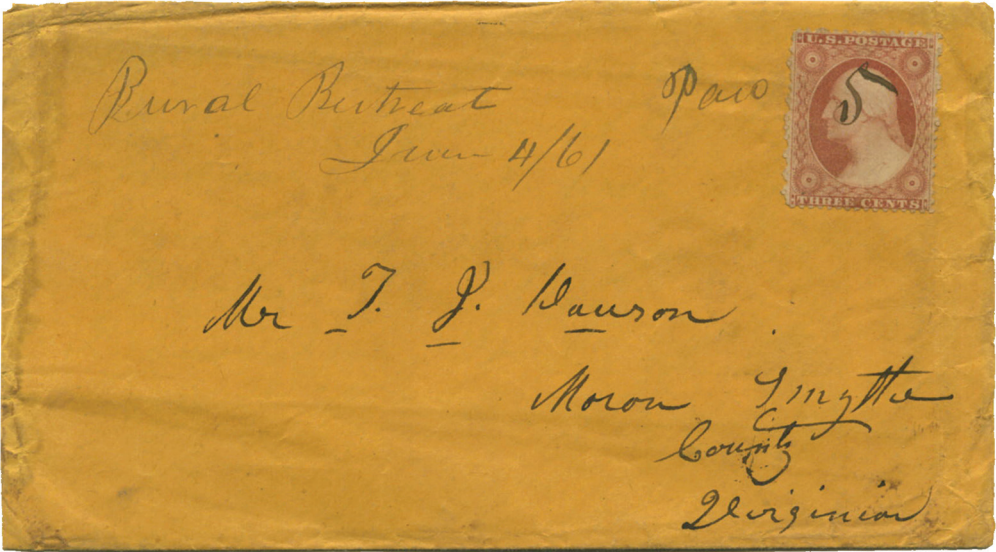 Rural Retreat
June 4/61
Paid 5
U.S. POSTAGE
THREE CENTS
Mr T. J. Dawson
Moron Smythe
County
Virginia